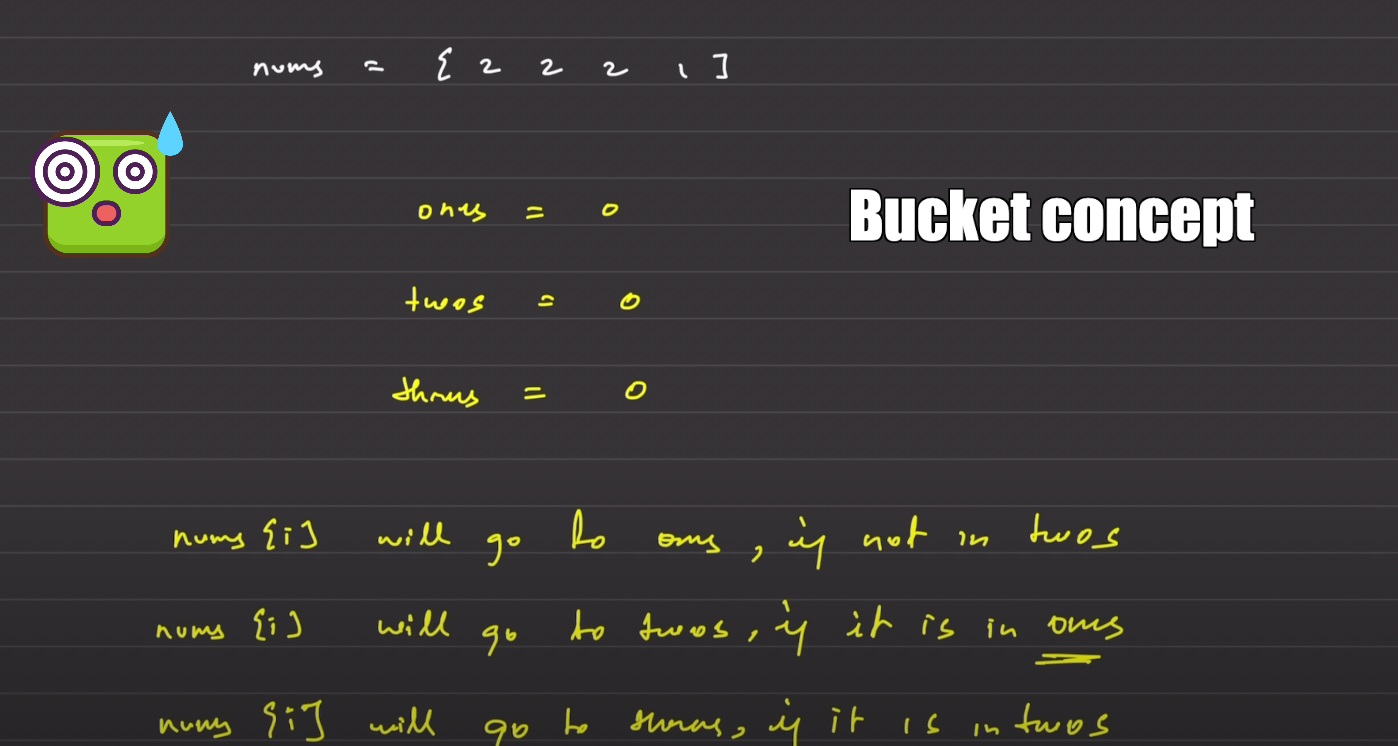 nums = { 2 2 2 1 ]
ones = 0
Bucket concept
twos = 0
threes = 0
nums [i] will go to ones, if not in twos
nums [i] will go to twos, if it is in ones
nums [i] will go to threes, if it is in twos